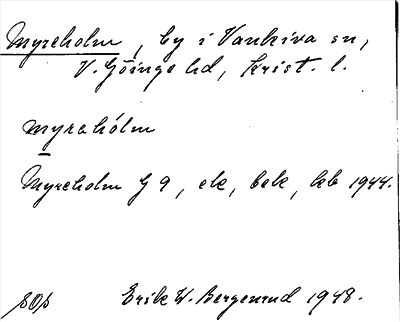 Myrcholm, by i Vankiva sn,
V. Göinge hd, Krist. l.
myrahólm
Myreholm G 9, ek, bek, kb 1944.
Erik W. Bergenrud 1948.